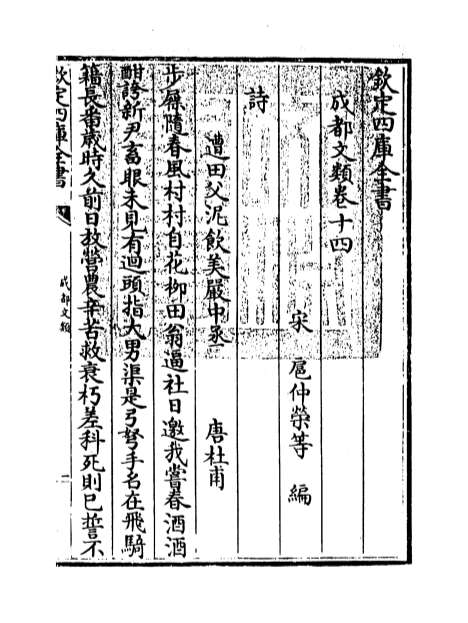 欽定四庫全書
成都文類卷十四
宋 扈仲榮等 編
詩
遭田父泥飲美嚴中丞 唐杜甫
步屧隨春風村村自花柳田翁逼社日邀我嘗春酒酒
酣誇新尹畜眼未見有迴頭指大男渠是弓弩手名在飛騎
籍長番歲時久前日放營農辛苦救衰朽差科死則已誓不
欽定四庫全書
成都文類
一